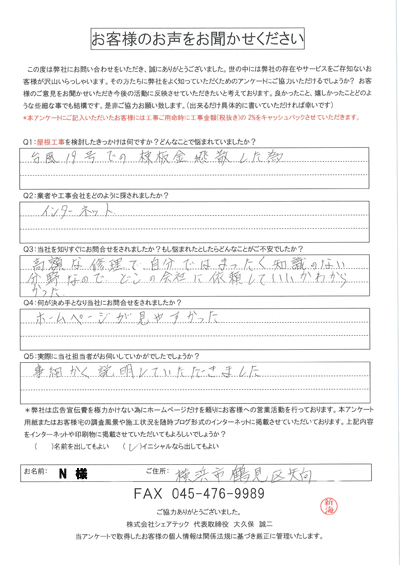 お客様のお声をお聞かせください
この度は弊社にお問い合わせをいただき、誠にありがとうございました。世の中には弊社の存在やサービスをご存知ないお
客様が沢山いらっしゃいます。その方たちに弊社をよく知っていただくためのアンケートにご協力いただけるでしょうか？ お客
様のご意見をお聞かせいただき今後の活動に反映させていただきたいと考えております。良かったこと、嬉しかったことどのよ
うな些細な事でも結構です。是非ご協力お願い致します。（出来るだけ具体的に書いていただければ幸いです）
*本アンケートにご記入いただいたお客様には工事ご用命時に工事金額(税抜き)の 2%をキャッシュバックさせていただきます。
Q1：屋根工事を検討したきっかけは何ですか？どんなことで悩まれていましたか？
台風19号での棟板金飛散した為
Q2：業者や工事会社をどのように探されましたか？
インターネット
Q3：当社を知りすぐにお問合せをされましたか？もし悩まれたとしたらどんなことがご不安でしたか？
高額な修理で自分ではまったく知識のない
分野なので、どこの会社に依頼していいかわから
なかった
Q4：何が決め手となり当社にお問合せをされましたか？
ホームページが見やすかった
Q5：実際に当社担当者がお伺いしていかがでしたでしょうか？
事細かく説明していただきました
＊弊社は広告宣伝費を極力かけない為にホームページだけを頼りにお客様への営業活動を行っております。本アンケート
用紙またはお客様宅の調査風景や施工状況を随時ブログ形式のインターネットに掲載させていただいております。上記内容
をインターネットや印刷物に掲載させていただいてもよろしいでしょうか？
（　）名前を出してもよい　（✓）イニシャルなら出してもよい
お名前： N 様 ご住所： 横浜市鶴見区矢向
FAX 045-476-9989
ご協力ありがとうございました。
株式会社シェアテック 代表取締役 大久保 誠二
当アンケートで取得したお客様の個人情報は関係法規に基づき厳正に管理いたします。
新海